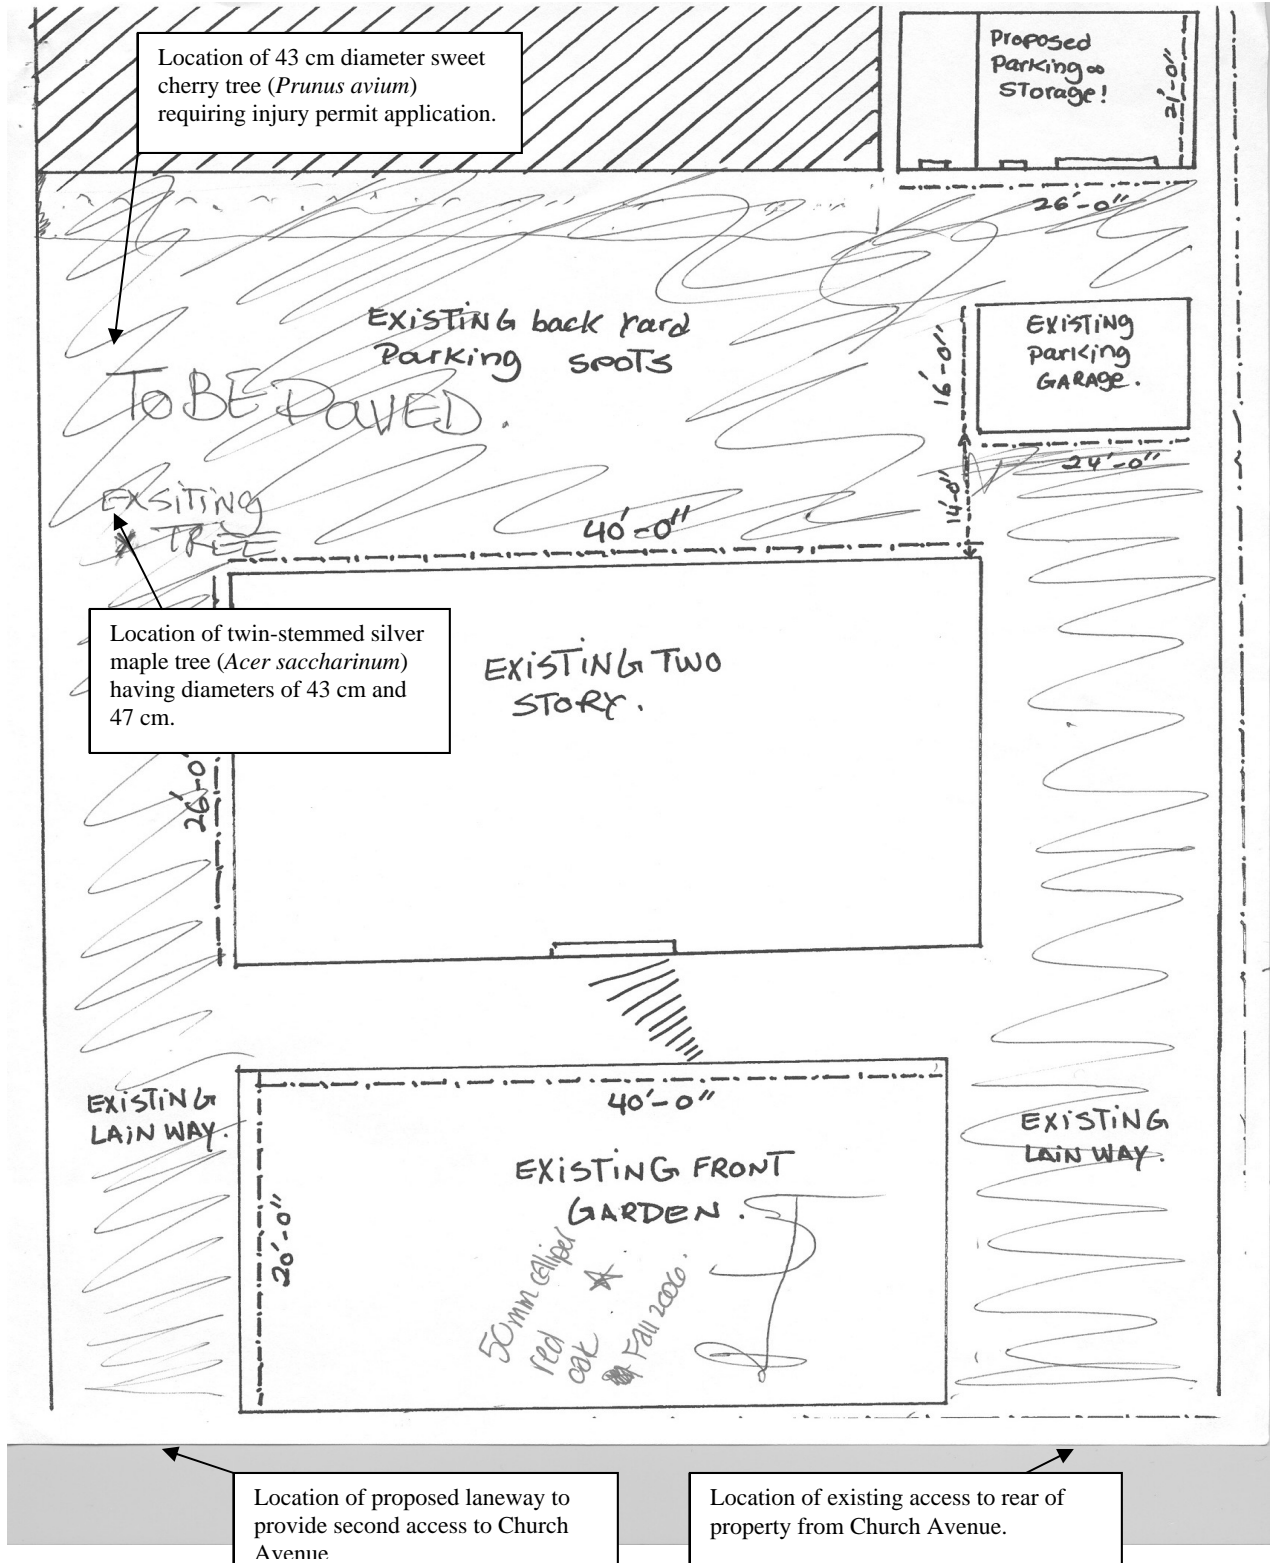 Location of 43 cm diameter sweet
cherry tree (Prunus avium)
requiring injury permit application.
Proposed
Parking oo
STorage!
21'-0"
26'-0"
EXiSTiNG back Yard
Parking spoTS
EXiSTiNG
parking
GARAge.
16'-0"
TO BE PAVED.
24'-0"
14'-0"
EXSiTiNg
TREE
40'-0"
Location of twin-stemmed silver
maple tree (Acer saccharinum)
having diameters of 43 cm and
47 cm.
EXiSTiNG TWO
STORY.
26'-0"
40'-0"
EXiSTiNG
LAiN WAY.
EXiSTiNG
LAiN WAY.
EXiSTiNG FRONT
GARDEN.
20'-0"
50mm calliper
red
oak
Fall 2006.
Location of proposed laneway to
provide second access to Church
Avenue
Location of existing access to rear of
property from Church Avenue.